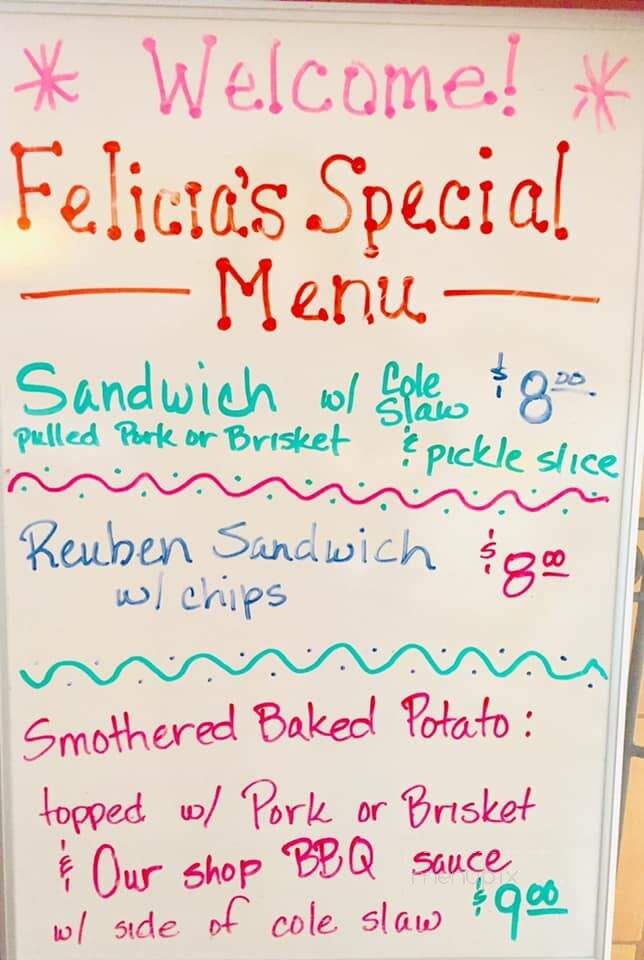 Welcome!
Felicia's Special
Menu
Sandwich w/ Cole Slaw $8.00
pulled Pork or Brisket & pickle slice
Reuben Sandwich $8.00
w/ chips
Smothered Baked Potato:
topped w/ Pork or Brisket
& Our shop BBQ sauce
w/ side of cole slaw $9.00
menupix